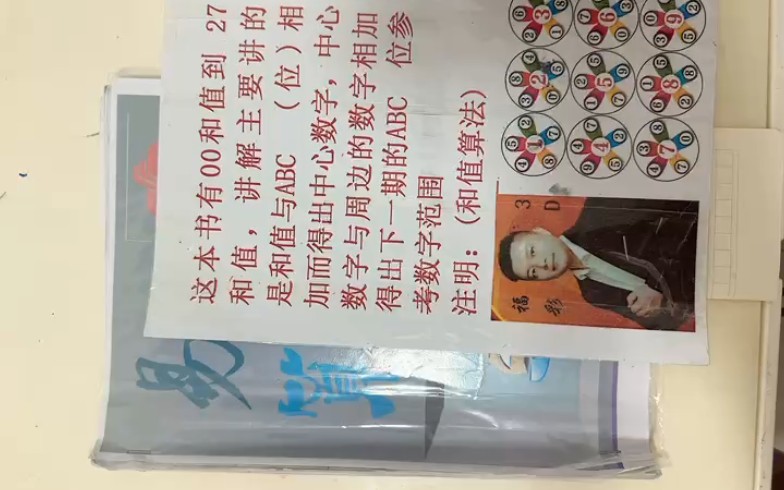 这本书有00和值到 27
和值，讲解主要讲的
是和值与ABC （位）相
加而得出中心数字，中心
数字与周边的数字相加
得出下一期的ABC 位参
考数字范围
注明：（和值算法）
3D
福彩
易
算